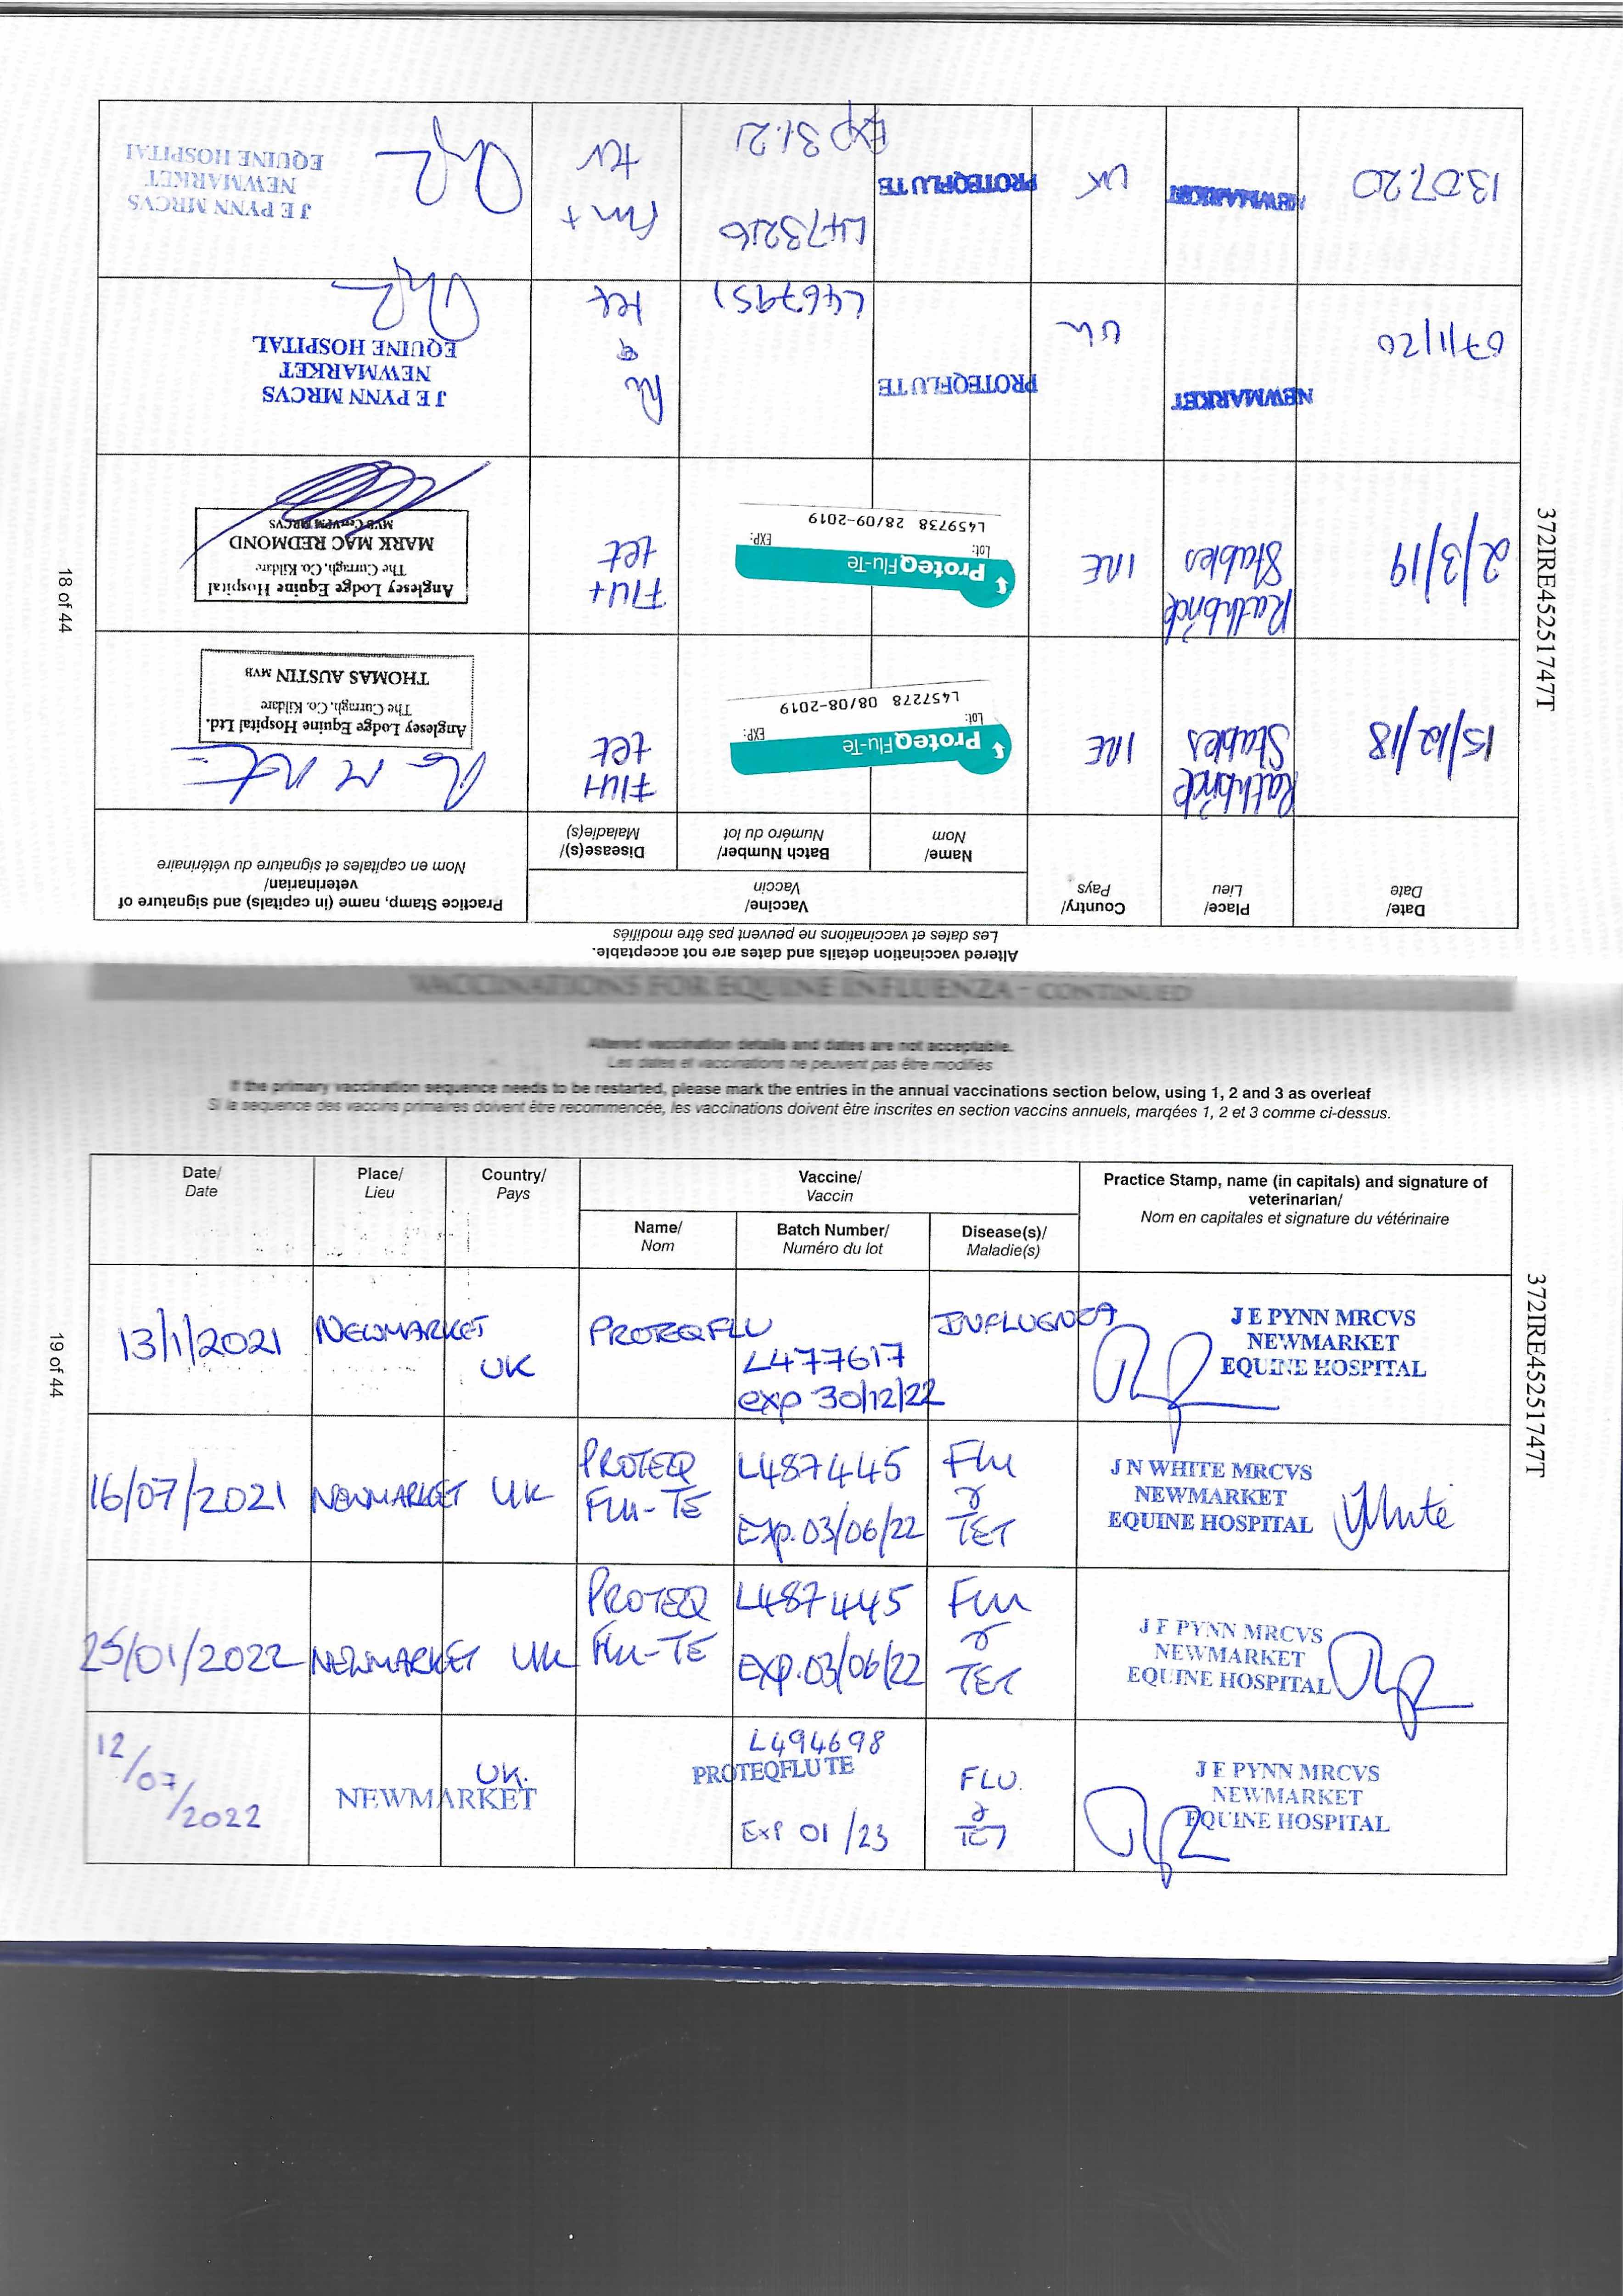 Altered vaccination details and dates are not acceptable.
Les dates et vaccinations ne peuvent pas être modifiés
Date/ Date
Place/ Lieu
Country/ Pays
Vaccine/ Vaccin
Name/ Nom
Batch Number/ Numéro du lot
Disease(s)/ Maladie(s)
Practice Stamp, name (in capitals) and signature of veterinarian/
Nom en capitales et signature du vétérinaire
15/12/18
Rathbride Stables
IRE
ProteqFlu-Te
Lot: EXP:
L457278 08/08-2019
Flu+ tet
Anglesey Lodge Equine Hospital Ltd.
The Curragh, Co. Kildare
THOMAS AUSTIN MVB
2/3/19
Rathbride Stables
IRE
ProteqFlu-Te
Lot: EXP:
L459738 28/09-2019
Flu+ tet
Anglesey Lodge Equine Hospital
The Curragh, Co. Kildare
MARK MAC REDMOND
MVB CertVPM MRCVS
07/1/20
NEWMARKET
UK
PROTEQFLUTE
L467951
& tet
J E PYNN MRCVS
NEWMARKET
EQUINE HOSPITAL
13.07.20
NEWMARKET
UK
PROTEQFLUTE
L473216
Exp 31.21
J E PYNN MRCVS
NEWMARKET
EQUINE HOSPITAL
18 of 44
372IRE45251747T
VACCINATIONS FOR EQUINE INFLUENZA - CONTINUED
Altered vaccination details and dates are not acceptable.
Les dates et vaccinations ne peuvent pas être modifiés
If the primary vaccination sequence needs to be restarted, please mark the entries in the annual vaccinations section below, using 1, 2 and 3 as overleaf
Si la sequence des vaccins primaires doivent être recommencée, les vaccinations doivent être inscrites en section vaccins annuels, marqées 1, 2 et 3 comme ci-dessus.
Date/ Date
Place/ Lieu
Country/ Pays
Vaccine/ Vaccin
Name/ Nom
Batch Number/ Numéro du lot
Disease(s)/ Maladie(s)
Practice Stamp, name (in capitals) and signature of veterinarian/
Nom en capitales et signature du vétérinaire
13/1/2021
NEWMARKET
UK
PROTEQFLU
L477617
exp 30/12/22
INFLUENZA
J E PYNN MRCVS
NEWMARKET
EQUINE HOSPITAL
16/07/2021
NEWMARKET
UK
PROTEQ FLU-TE
L487445
EXP. 03/06/22
Flu & TET
J N WHITE MRCVS
NEWMARKET
EQUINE HOSPITAL
JWhite
25/01/2022
NEWMARKET
UK
PROTEQ FLU-TE
L487445
EXP. 03/06/22
Flu & TET
J E PYNN MRCVS
NEWMARKET
EQUINE HOSPITAL
12/07/2022
NEWMARKET
UK.
PROTEQFLUTE
L494698
EXP 01/23
FLU. & TET
J E PYNN MRCVS
NEWMARKET
EQUINE HOSPITAL
19 of 44
372IRE45251747T